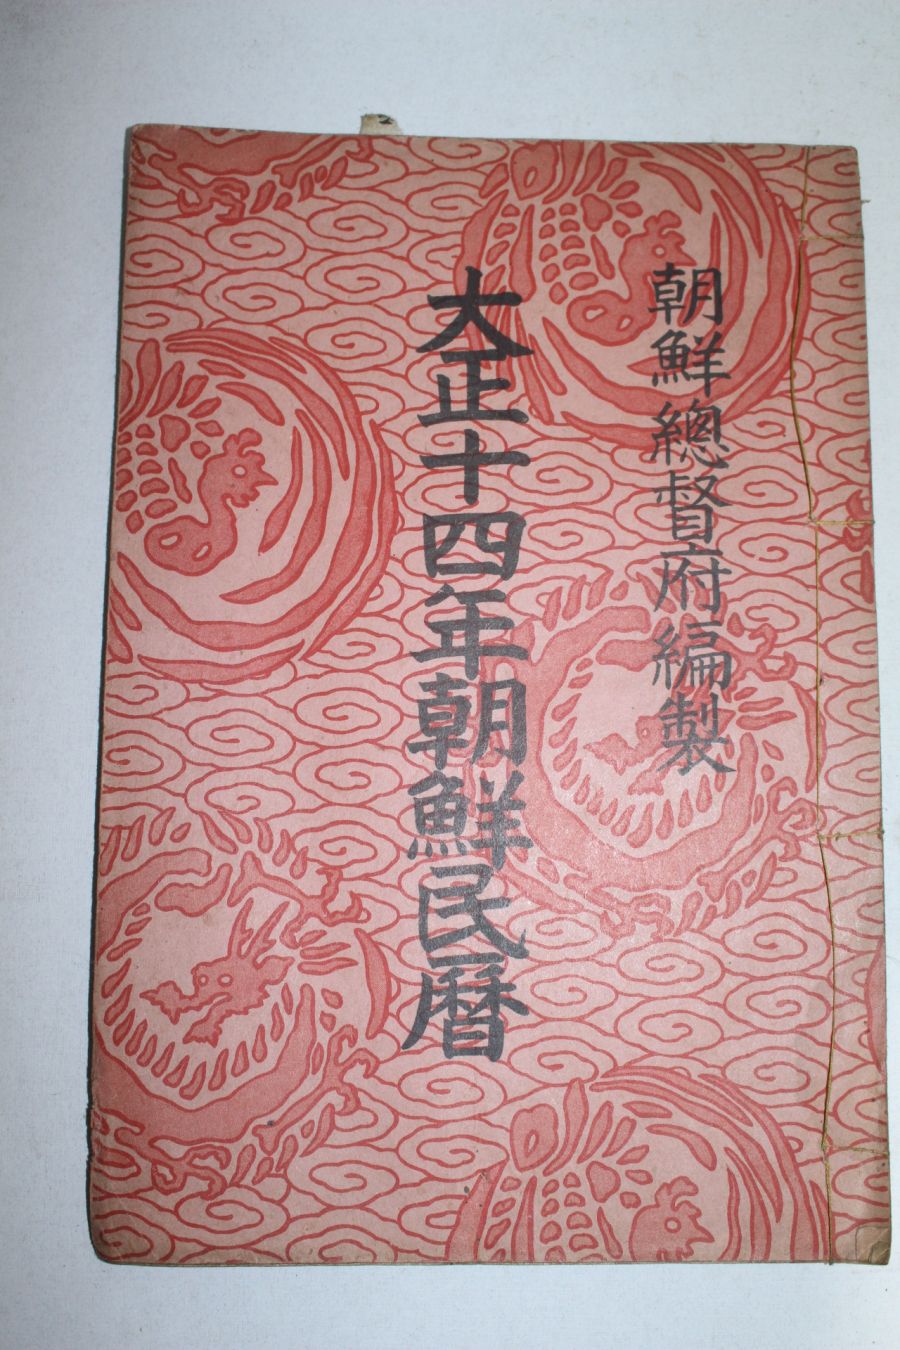 朝鮮總督府編製
大正十四年朝鮮民曆